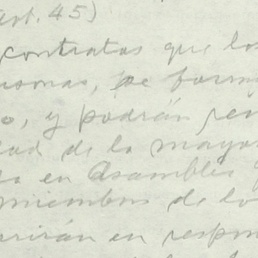 art. 45)
contratos que los
sonas, se form
o, y podrán
dad de la mayo
en Asamblea
miembros de lo
rirán en respon